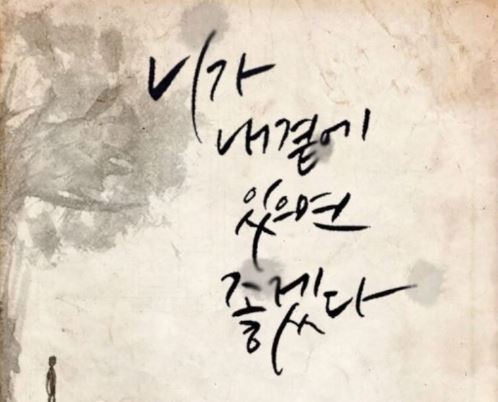 니가
내곁에
있으면
좋겠다